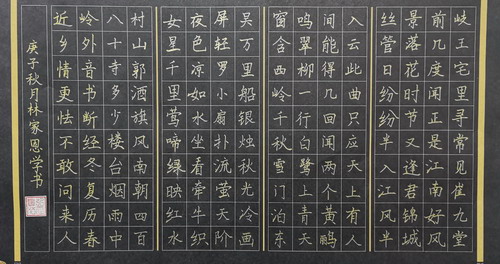 岐王宅里寻常见崔九堂
前几度闻正是江南好风
景落花时节又逢君锦城
丝管日纷纷半入江风半
入云此曲只应天上有人
间能得几回闻两个黄鹂
鸣翠柳一行白鹭上青天
窗含西岭千秋雪门泊东
吴万里船银烛秋光冷画
屏轻罗小扇扑流萤天阶
夜色凉如水坐看牵牛织
女星千里莺啼绿映红水
村山郭酒旗风南朝四百
八十寺多少楼台烟雨中
岭外音书断经冬复历春
近乡情更怯不敢问来人
庚子秋月林家恩学书